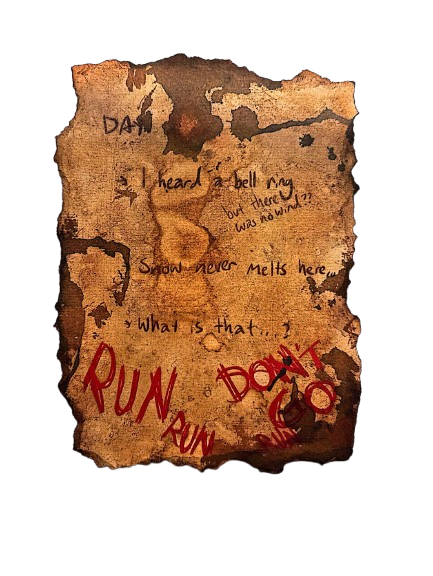 DAY
- I heard a bell ring
but there was no wind??
Snow never melts here...
- What is that...?
RUN
DON'T
GO
RUN
RUN